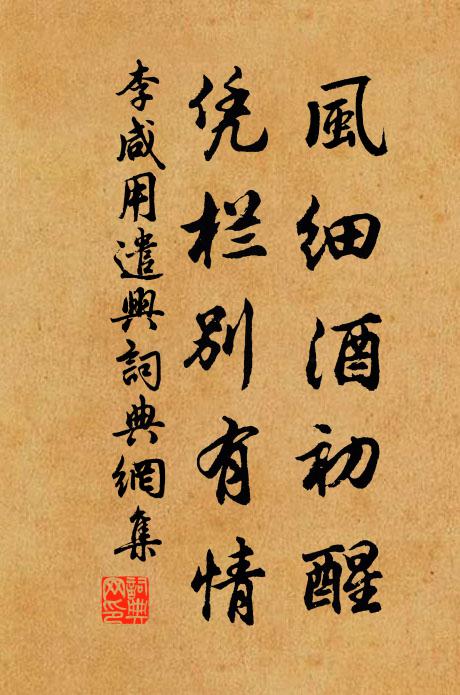 風细酒初醒
凭栏别有情
李咸用遣興詞典網集
詞典网印